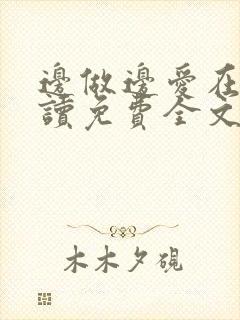 邊做邊愛在
讀免費全文
木木夕硯